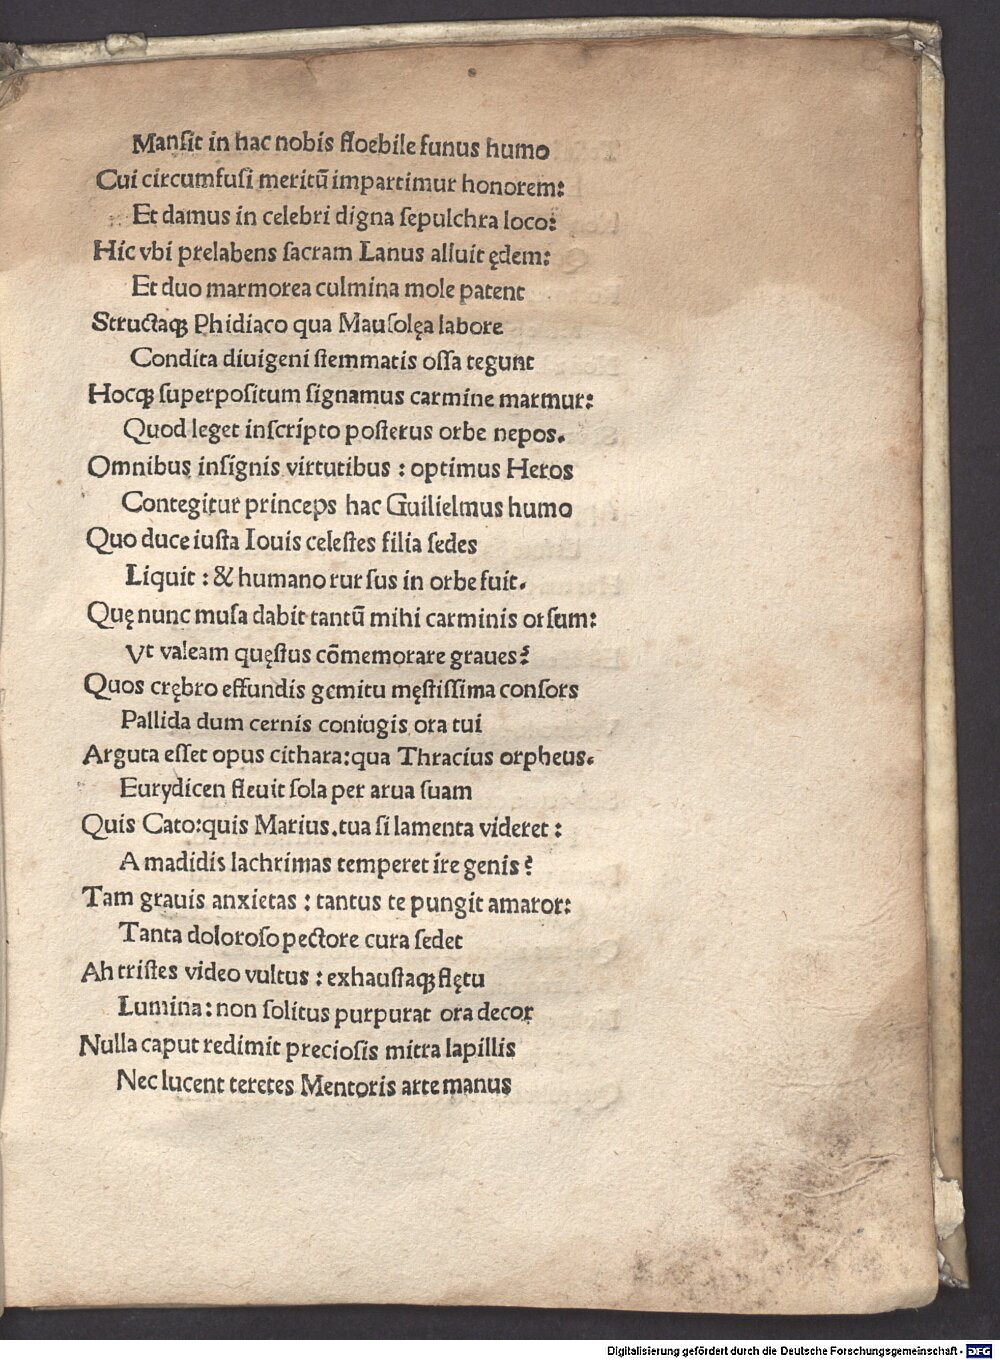 Mansit in hac nobis floebile funus humo
Cui circumfusi meritũ impartimur honorem:
Et damus in celebri digna sepulchra loco:
Hic vbi prelabens sacram Lanus alluit ędem:
Et duo marmorea culmina mole patent
Structaqꝫ Phidiaco qua Mausolęa labore
Condita diuigeni stemmatis ossa tegunt
Hocqꝫ superpositum signamus carmine marmur:
Quod leget inscripto posterus orbe nepos.
Omnibus insignis virtutibus : optimus Heros
Contegitur princeps hac Guilielmus humo
Quo duce iusta Iouis celestes filia sedes
Liquit : & humano rursus in orbe fuit.
Quę nunc musa dabit tantũ mihi carminis orsum:
Vt valeam quęstus cõmemorare graues?
Quos crębro effundis gemitu męstissima consors
Pallida dum cernis coniugis ora tui
Arguta esset opus cithara:qua Thracius orpheus.
Eurydicen fleuit sola per arua suam
Quis Cato:quis Marius.tua si lamenta videret :
A madidis lachrimas temperet ire genis?
Tam grauis anxietas : tantus te pungit amaror:
Tanta doloroso pectore cura sedet
Ah tristes video vultus : exhaustaqꝫ flętu
Lumina: non solitus purpurat ora decor
Nulla caput redimit preciosis mitra lapillis
Nec lucent teretes Mentoris arte manus
Digitalisierung gefördert durch die Deutsche Forschungsgemeinschaft - DFG